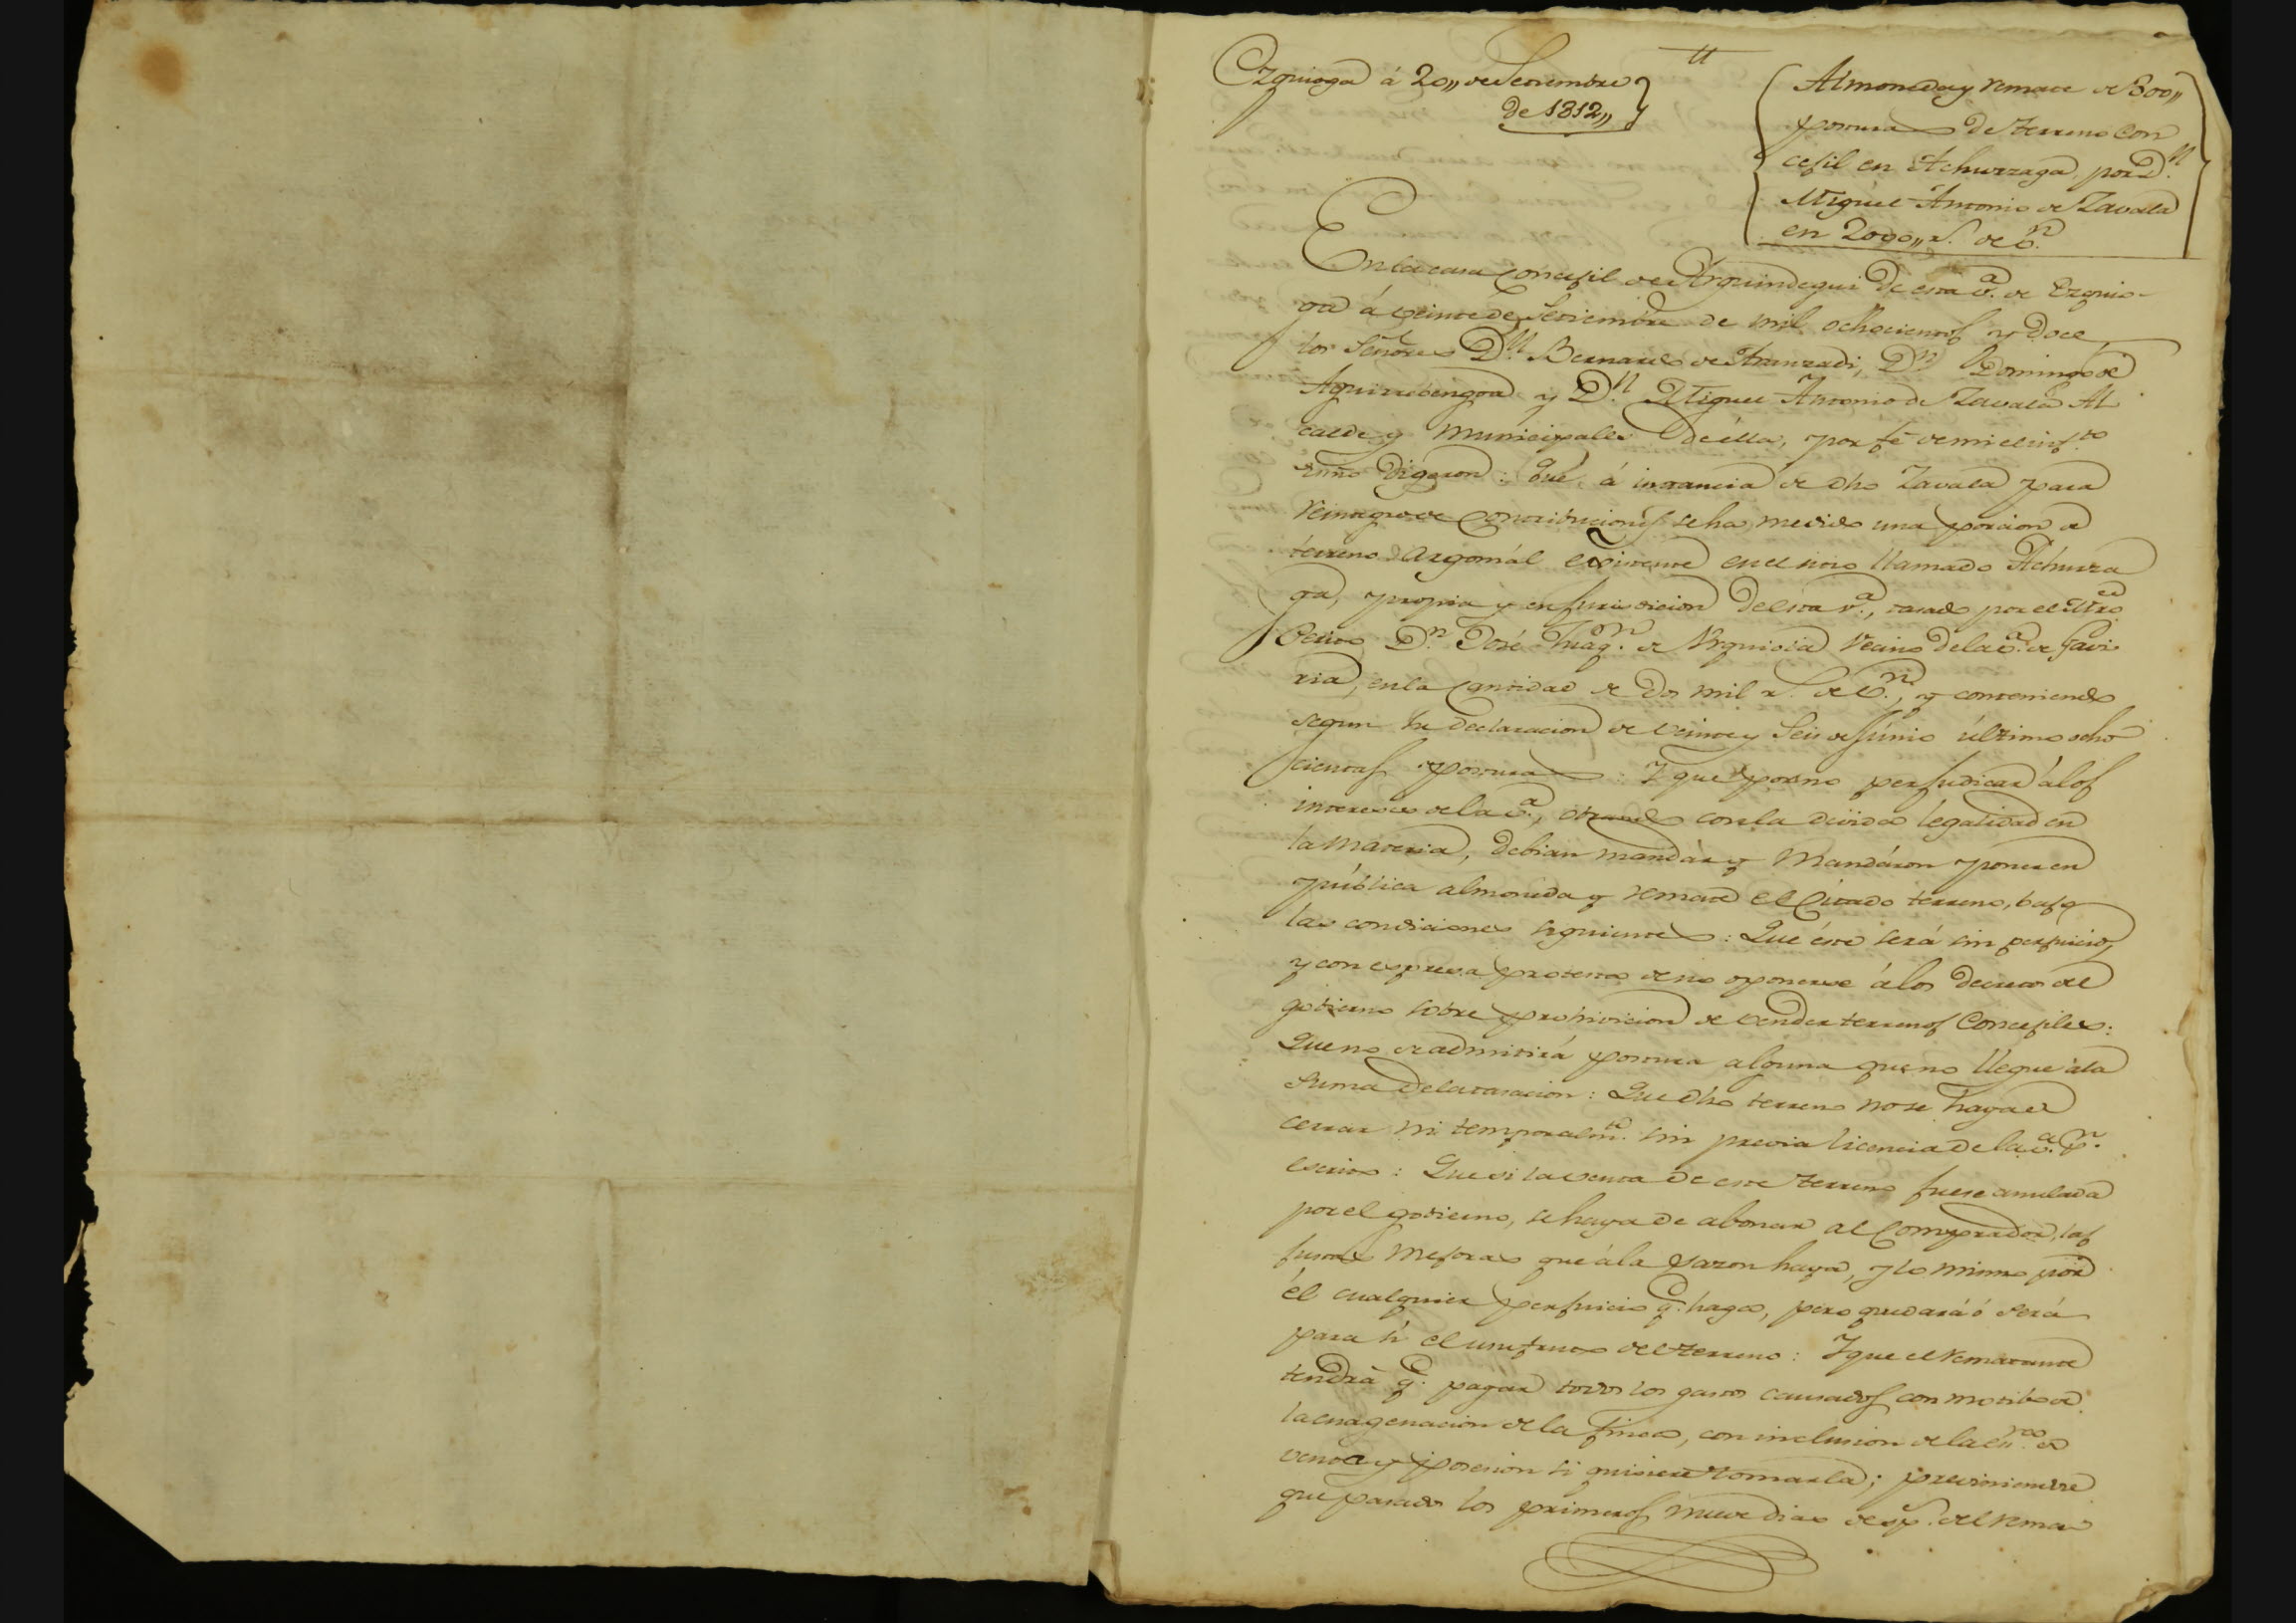 Ezquioga á 20,, de Setiembre
de 1812,,
Almoneda y remate de 800,,
posturas de terreno con
cejil en Achurzaga, por Dn.
Miguel Antonio de Zavala
en 2000,, r.s de vn.
En la casa concejil de Arguindegui de esta va. de Ezquio-
ga á veinte de Setiembre de mil ochocientos y doce
los Señores Dn. Bernardo de Aranzadi, Dn. Domingo de
Aguirrebengoa y Dn. Miguel Antonio de Zavala Al
calde y Municipales de élla, por fé de mi el infto.
esno. Digeron: Que á instancia de dho Zavala para
reintegro de contribuciones se ha medido una porcion de
terreno argomál existente en el sitio llamado Achurza
ga, propia y en jurisdicion de esta va., tasado por el Mro
Perito Dn. José Joaqn. de Urquiola vecino de la va. de Gavi
ria, en la cantidad de dos mil r.s de vn., y conteniendo
segun su declaracion de veinte y seis de Júnio último ocho
cientas posturas: Y que por no perjudicar á los
intereses de la va., obrando con la devida legalidad en
la materia, debian mandár y mandáron poner en
pública almoneda y remate el citado terreno, bajo
las condiciones siguientes: Que éste será sin perjuicio,
y con espresa protesta de no oponerse á los Decretos del
gobierno sobre prohivicion de vender terrenos Concejiles:
Que no se admitirá postura alguna que no llegue á la
suma de la tasacion: Que dho terreno no se haya de
cerrar ni temporalmte. sin previa licencia de la va. pr.
escrito: Que si la venta de este terreno fuese anulada
por el gobierno, se haya de abonar al Comprador, las
justas mejoras que á la sazon haya, y lo mismo por
él cualquier perjuicio q. haga, pero quedará ó será
para sí el usufruto del terreno: Y que el rematante
tendrá q. pagar todos los gastos causados con motibo de
la enagenacion de la finca, con inclusion de la esra. de
venta y posesion si quisiere tomarla; previniendose
que pasados los primeros nueve dias desp. del rema